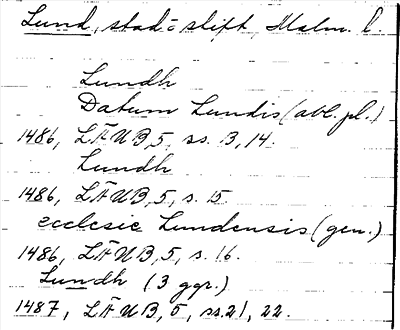 Lund, stad o. stift, Malm. l.
Lundh
Datum Lundis (abl. pl.)
1486, LÄUB, 5, ss. 13, 14.
Lundh
1486, LÄUB, 5, s. 15
ecclesie Lundensis (gen.)
1486, LÄUB, 5, s. 16.
Lundh (3 ggr.)
1487, LÄUB, 5, ss. 21, 22.